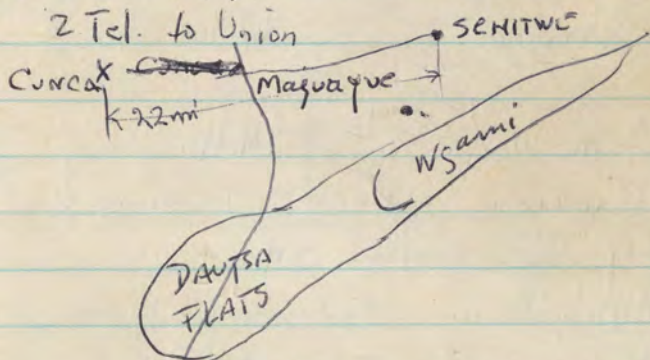 2 Tel. to Union
SEHITWE
CUNCA X
Maquaque
22 mi
Ngami
DAUTSA
FLATS